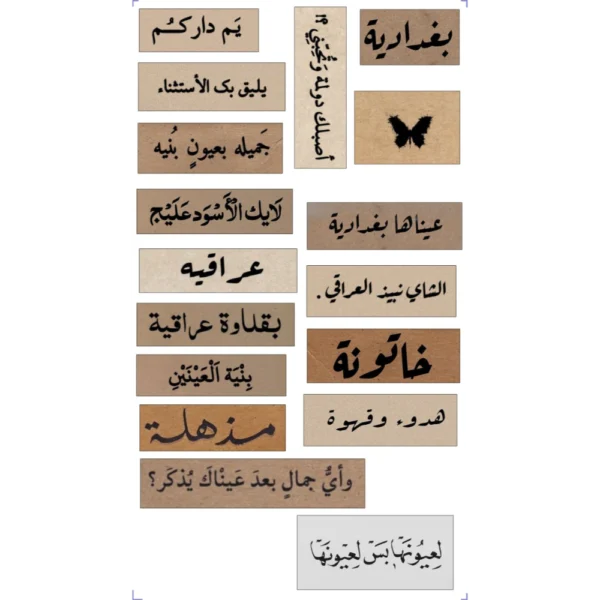 يَم داركـُم
أصبلك دولمة وَتحُبّني ؟!
بغدادية
يليق بک الأستثناء
جَميله بعيونٍ بُنيه
لَايك الْأَسْوَد عَلَيْج
عيناها بغدادية
عراقيه
الشاي نبيذ العراقي .
بقلاوة عراقية
خاتونة
بِنْيَة اَلْعَيْنَيْنِ
هدوء وقهوة
مذهلة
وأيُّ جمالٍ بعدَ عَيناكَ يُذكَر؟
لِعِيُونَهَا بَسْ لِعِيْونَهَا